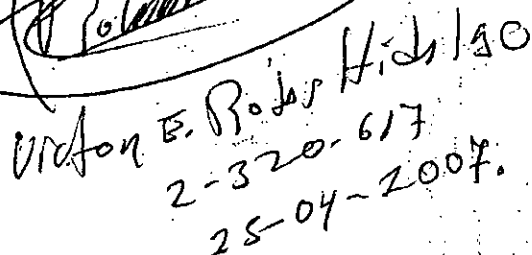 Victor E. Rojas Hidalgo
2-320-617
25-04-2007.